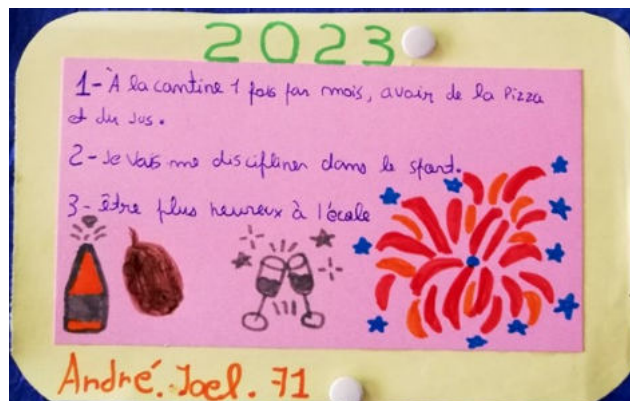 2023
1- À la cantine 1 fois par mois, avoir de la Pizza
et du Jus.
2- Je vais me discipliner dans le sport.
3- être plus heureux à l'école
André. Joel. 71